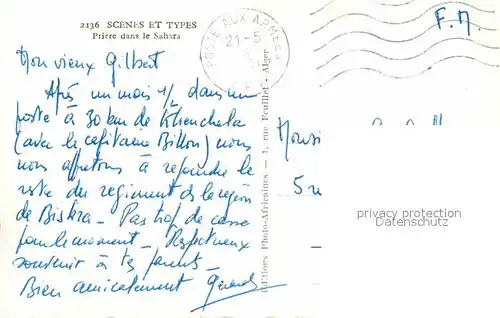 2136 SCÈNES ET TYPES
Prière dans le Sahara
POSTE AUX ARMÉES
21-5
F.M.
Mon vieux Gilbert
Après un mois 1/2 dans un
poste à 30 km de Khenchela
(avec le capitaine Billon) nous
nous apprêtons à rejoindre le
reste du régiment ds la région
de Biskra - Pas trop de casse
pour le moment - Respectueux
souvenir à tes parents -
Bien amicalement Gérard
Editions Photo-Africaines - 1, rue Feuillet - Alger
Monsi
5 ru
privacy protection
Datenschutz